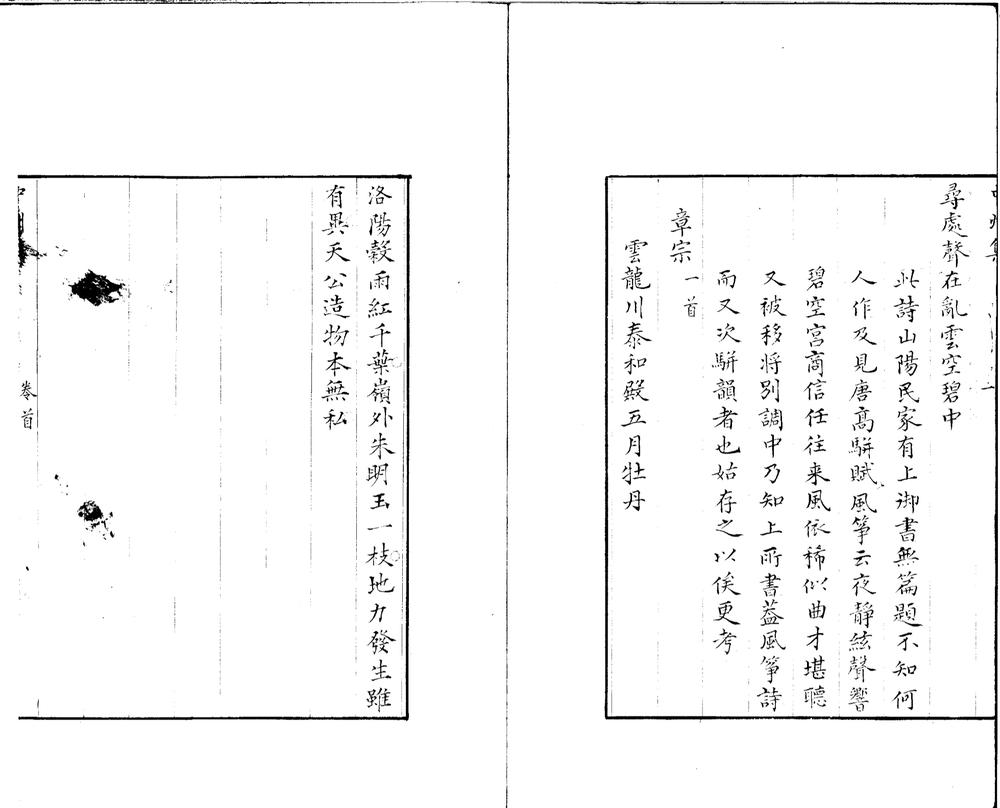 尋處聲在亂雲空碧中
此詩山陽民家有上御書無篇題不知何
人作及見唐高駢賦風箏云夜靜絃聲響
碧空宮商信任往来風依稀似曲才堪聽
又被移將別調中乃知上所書葢風箏詩
而又次駢韻者也姑存之以俟更考
章宗一首
雲龍川泰和殿五月牡丹
洛陽穀雨紅千葉嶺外朱明玉一枝地力發生雖
有異天公造物本無私
卷首